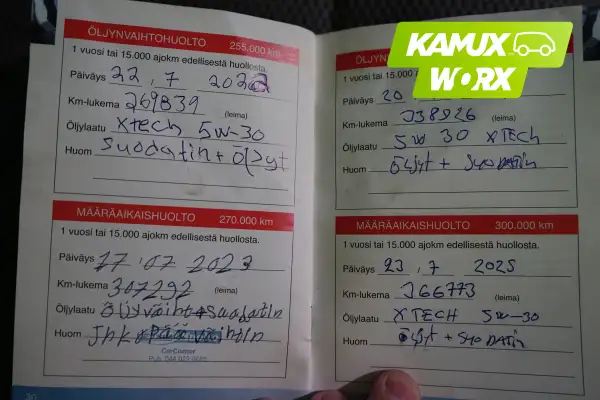 ÖLJYNVAIHTOHUOLTO 255.000 km
1 vuosi tai 15.000 ajokm edellisestä huollosta.
Päiväys 22 . 7 2022
Km-lukema 269839
(leima)
Öljylaatu Xtech 5W-30
Huom Suodatin + öljyt
MÄÄRÄAIKAISHUOLTO 270.000 km
1 vuosi tai 15.000 ajokm edellisestä huollosta.
Päiväys 17 . 07 2023
Km-lukema 307292
(leima)
Öljylaatu Öljyvaiht + Suodatin
Huom
CarCorner
KAMUX
WORX
ÖLJYN
1 vuosi tai 15.000
Päiväys 20
Km-lukema 338926
(leima)
Öljylaatu 5W 30 XTECH
Huom Öljyt + Suodatin
MÄÄRÄAIKAISHUOLTO 300.000 km
1 vuosi tai 15.000 ajokm edellisestä huollosta.
Päiväys 23 . 7 2025
Km-lukema 366773
(leima)
Öljylaatu XTECH 5W-30
Huom öljyt + Suodatin